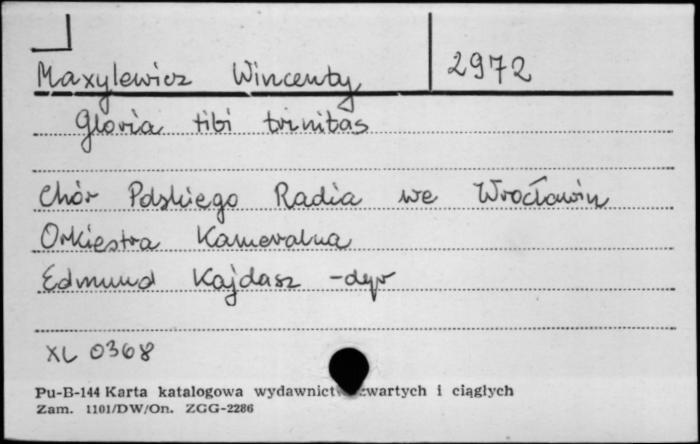 Maxylewicz Wincenty 2972
Gloria tibi trinitas
Chór Polskiego Radia we Wrocławiu
Orkiestra Kameralna
Edmund Kajdasz - dyr
XL 0368
Pu-B-144 Karta katalogowa wydawnictw zwartych i ciągłych
Zam. 1101/DW/On. ZGG-2286